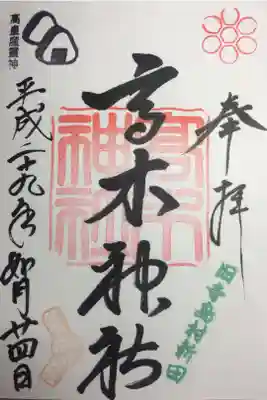 奉拝
旧寺島村新田
高木神社
高木神社
高皇産霊神
平成二十九年如月廿四日